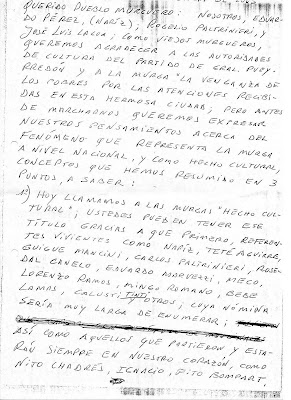 QUERIDO PUEBLO MURGUERO: NOSOTROS, EDUAR-
DO PÉREZ, (NARIZ); ROGELIO PALTRINIERI, Y
JOSÉ LUIS LACOA; COMO VIEJOS MURGUEROS,
QUEREMOS AGRADECER A LAS AUTORIDADES
DE CULTURA DEL PARTIDO DE GRAL. PUEY-
RREDÓN Y A LA MURGA "LA VENGANZA DE
LOS POBRES POR LAS ATENCIONES RECIBI-
DAS EN ESTA HERMOSA CIUDAD; PERO ANTES
DE MARCHARNOS QUEREMOS EXPRESAR
NUESTROS PENSAMIENTOS ACERCA DEL
FENÓMENO QUE REPRESENTA LA MURGA
A NIVEL NACIONAL, Y COMO HECHO CULTURAL,
CONCEPTOS QUE HEMOS RESUMIDO EN 3
PUNTOS, A SABER:
1º) HOY LLAMAMOS A LAS MURGAS "HECHO CUL-
TURAL"; USTEDES PUEDEN TENER ESE
TÍTULO GRACIAS A QUE PRIMERO, REFEREN-
TES VIVIENTES COMO NARIZ, TETÉ AGUIRRE,
GUIGUE MANCINI, CARLOS PALTRINIERI, ROSE-
DAL CANELO, EDUARDO MARVEZZI, MECO,
LORENZO RAMOS, MINGO ROMANO, BEBE
LAMAS, GALUSTI TINTO OTROS, CUYA NÓMINA
SERÍA MUY LARGA DE ENUMERAR;
ASÍ COMO AQUELLOS QUE PARTIERON Y ESTA-
RÁN SIEMPRE EN NUESTRO CORAZÓN, COMO
NITO CHADRES, IGNACIO, PITO BOMPART,